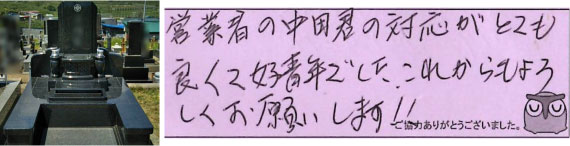 営業者の中田君の対応がとても
良くて好青年でした。これからもよろ
しくお願いします!!
ご協力ありがとうございました。